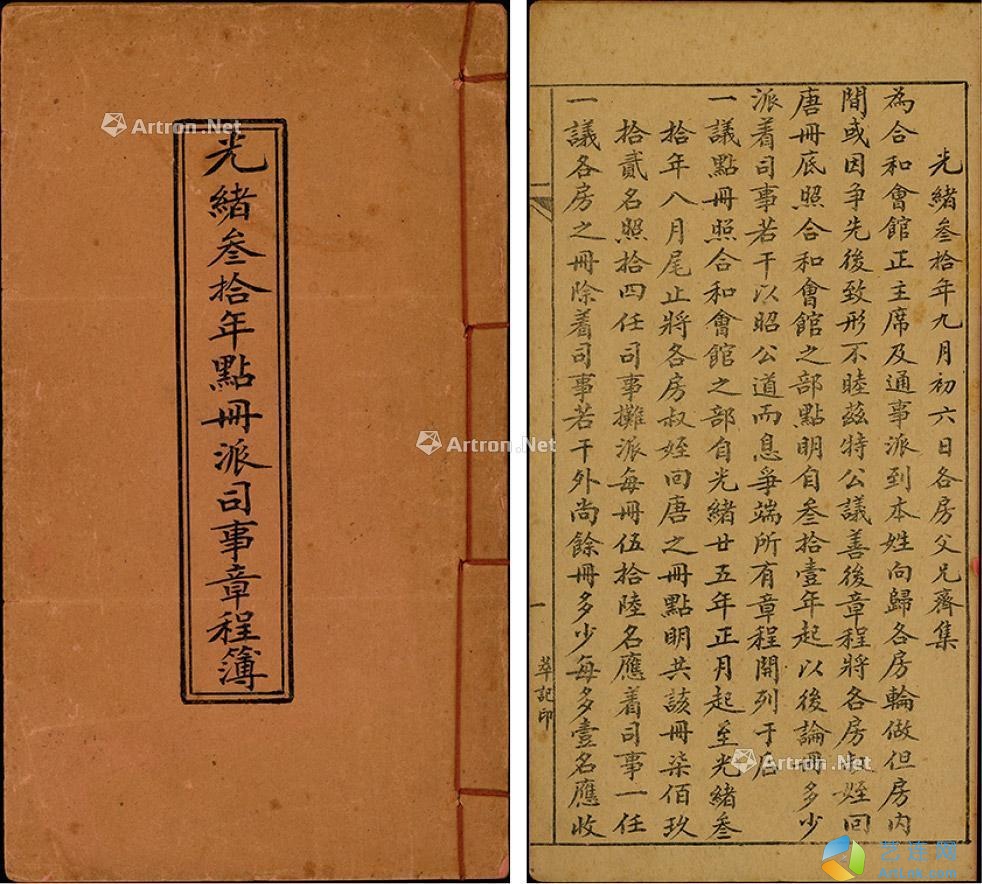 光緒叁拾年點冊派司事章程簿
光緒叁拾年九月初六日各房父兄齊集
為合和會館正主席及通事派到本姓向歸各房輪做但房內
間或因爭先後致形不睦茲特公議善後章程將各房叔姪回
唐冊底照合和會館之部點明自叁拾壹年起以後論冊多少
派着司事若干以昭公道而息爭端所有章程開列于后
一議點冊照合和會館之部自光緒廿五年正月起至光緒叁
拾年八月尾止將各房叔姪回唐之冊點明共該冊柒佰玖
拾貳名照拾四任司事攤派每冊伍拾陸名應着司事一任
一議各房之冊除着司事若干外尚餘冊多少每多壹名應收
一
萃記印
Artron.Net
Artron.Net
Artron.Net